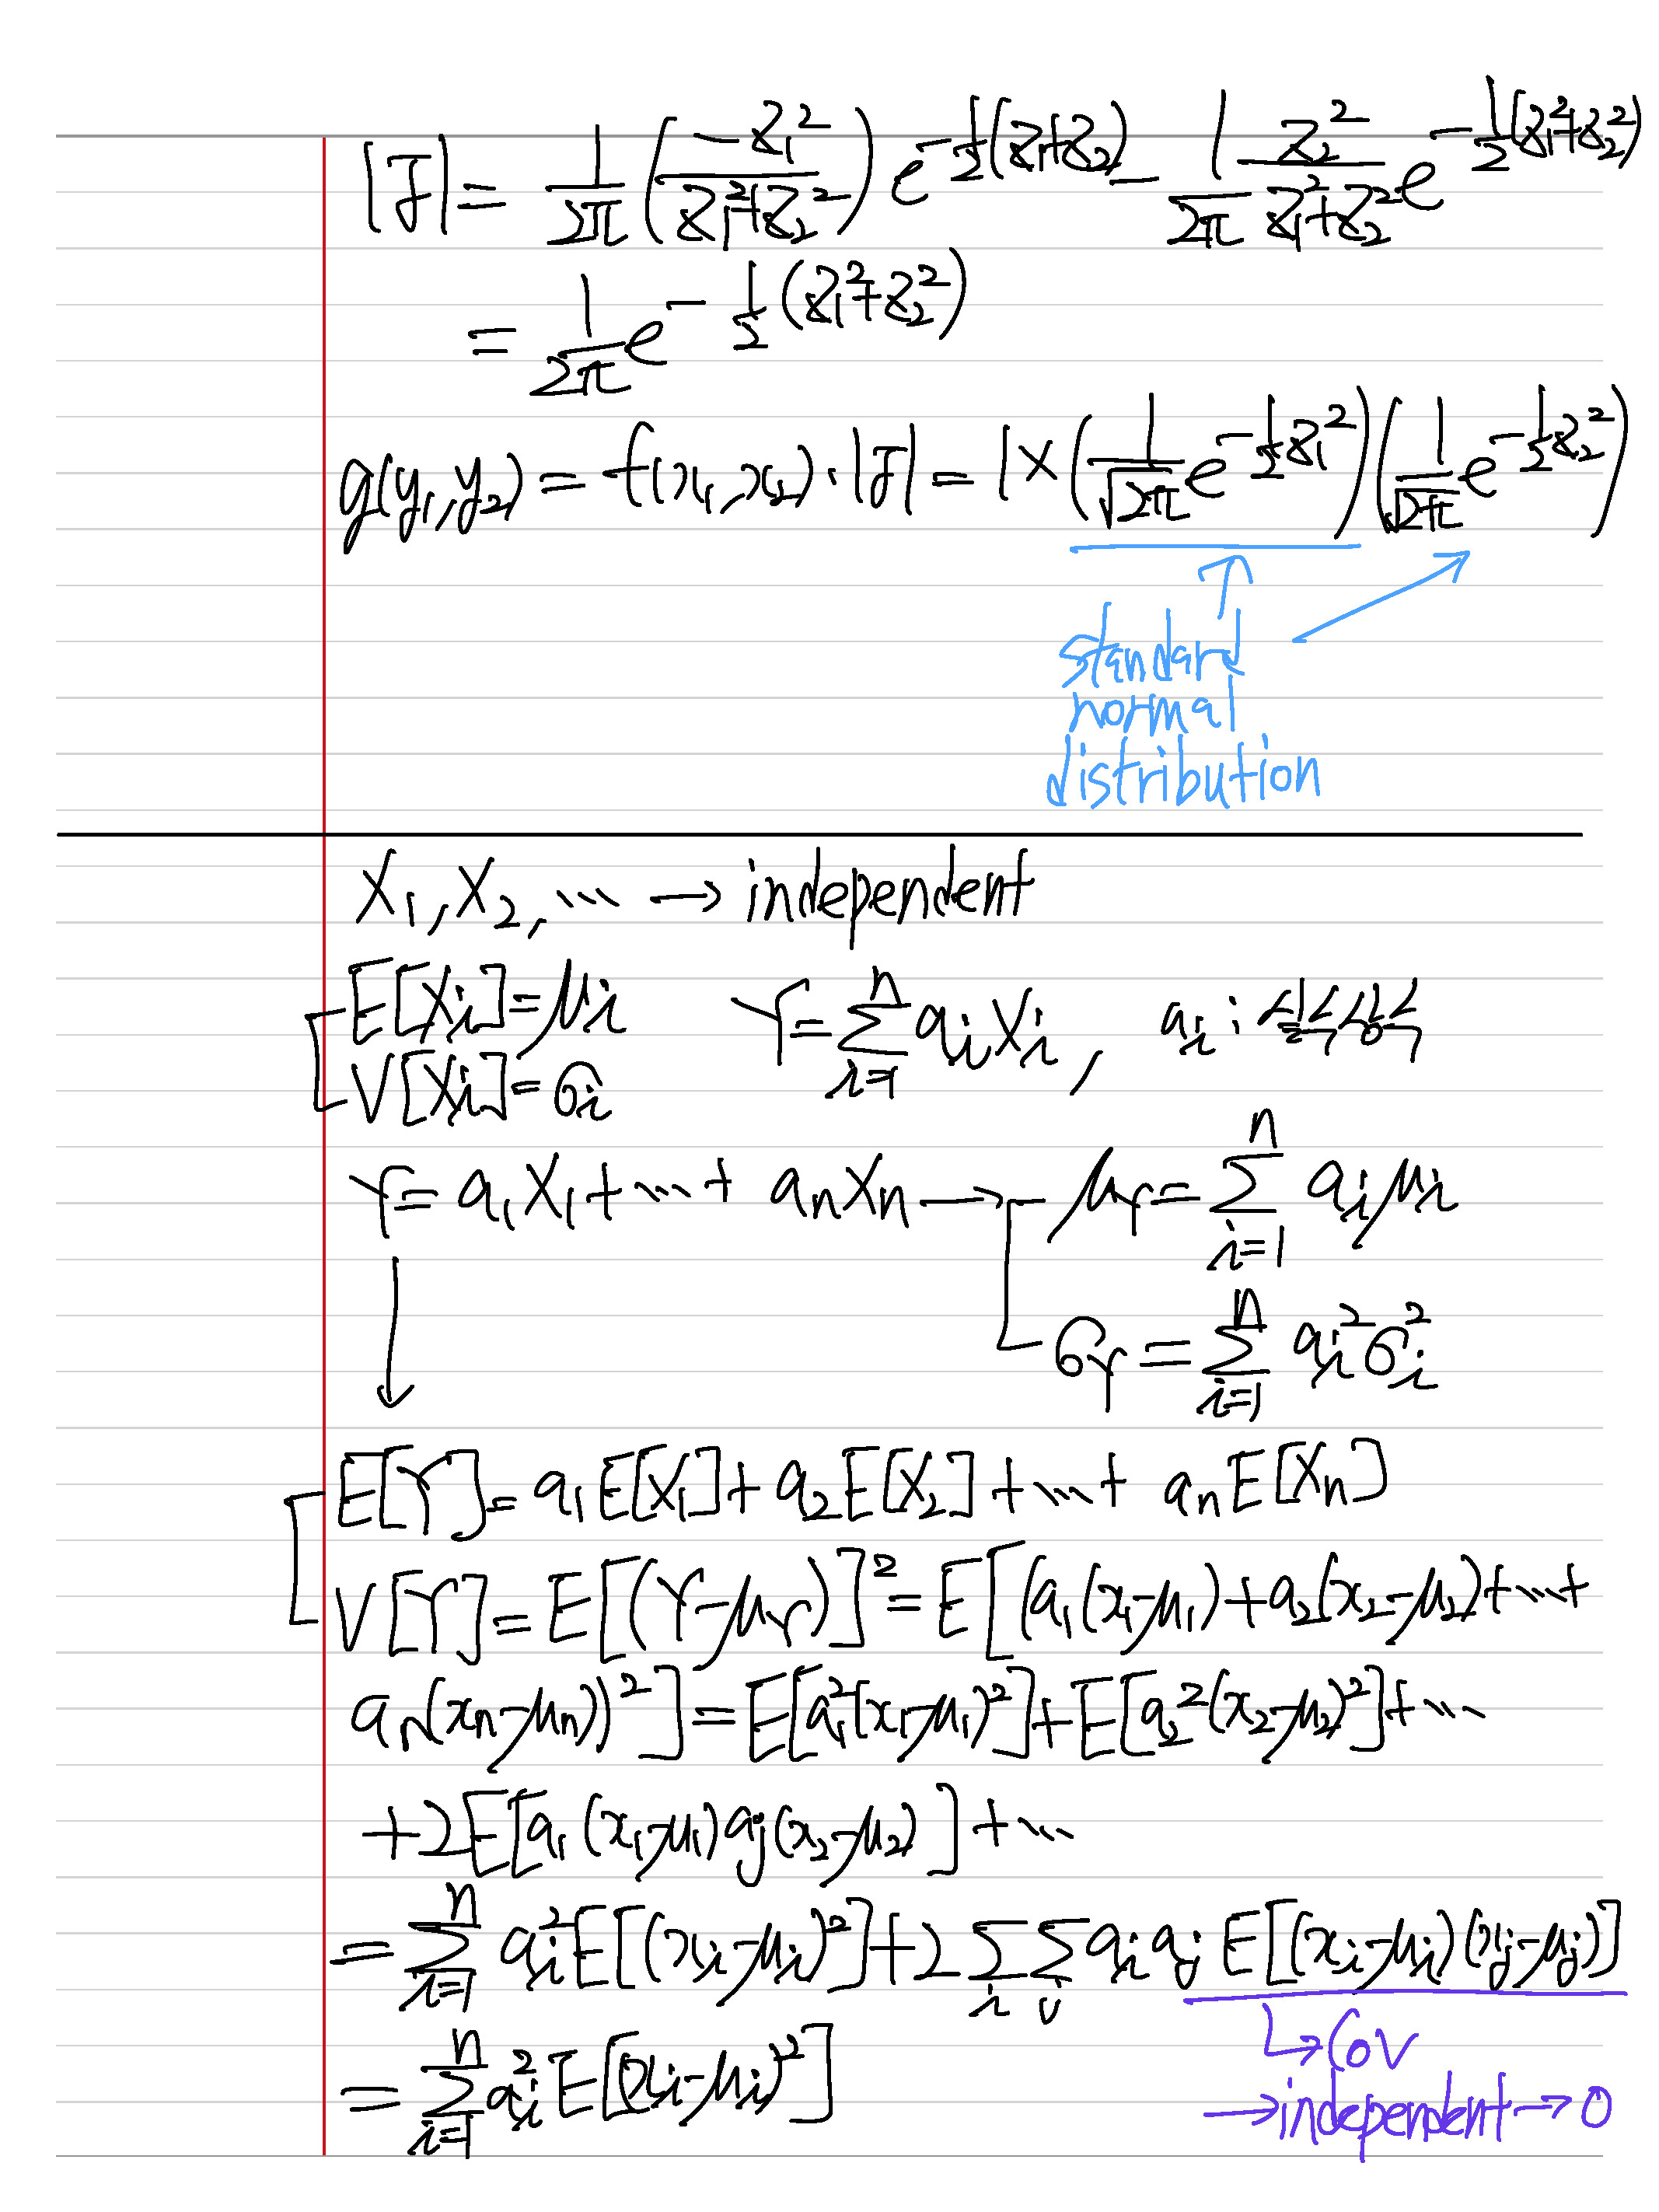 |J| = 1/2π (-z₁²/z₁²+z₂²) e^-1/2(z₁+z₂) - 1/2π z₂²/z₁²+z₂² e^-1/2(z₁²+z₂²)
= 1/2π e^-1/2(z₁²+z₂²)
g(y₁,y₂) = f(x₁,x₂)·|J| = 1×(1/√2π e^-1/2z₁²)(1/√2π e^-1/2z₂²)
standard
normal
distribution
X₁,X₂,⋯ → independent
E[Xi]=μi Y=∑_{i=1}^{n} aiXi, ai :
V[Xi]=σi
Y= a₁X₁+⋯+ anXn → μY=∑_{i=1}^{n} aiμi
σY=∑_{i=1}^{n} ai²σi²
E[Y]= a₁E[X₁]+a₂E[X₂]+⋯+ anE[Xn]
V[Y]=E[(Y-μY)]²=E[(a₁(x₁-μ₁)+a₂(x₂-μ₂)+⋯+
an(xn-μn))²]=E[a₁²(x₁-μ₁)²]+E[a₂²(x₂-μ₂)²]+⋯
+2E[a₁(x₁-μ₁)aj(x₂-μ₂)]+⋯
=∑_{i=1}^{n} ai²E[(xi-μi)²]+2∑_{i}∑_{j} aiaj E[(xi-μi)(xj-μj)]
→ Cov
=∑_{i=1}^{n} ai²E[(xi-μi)²] → independent → 0